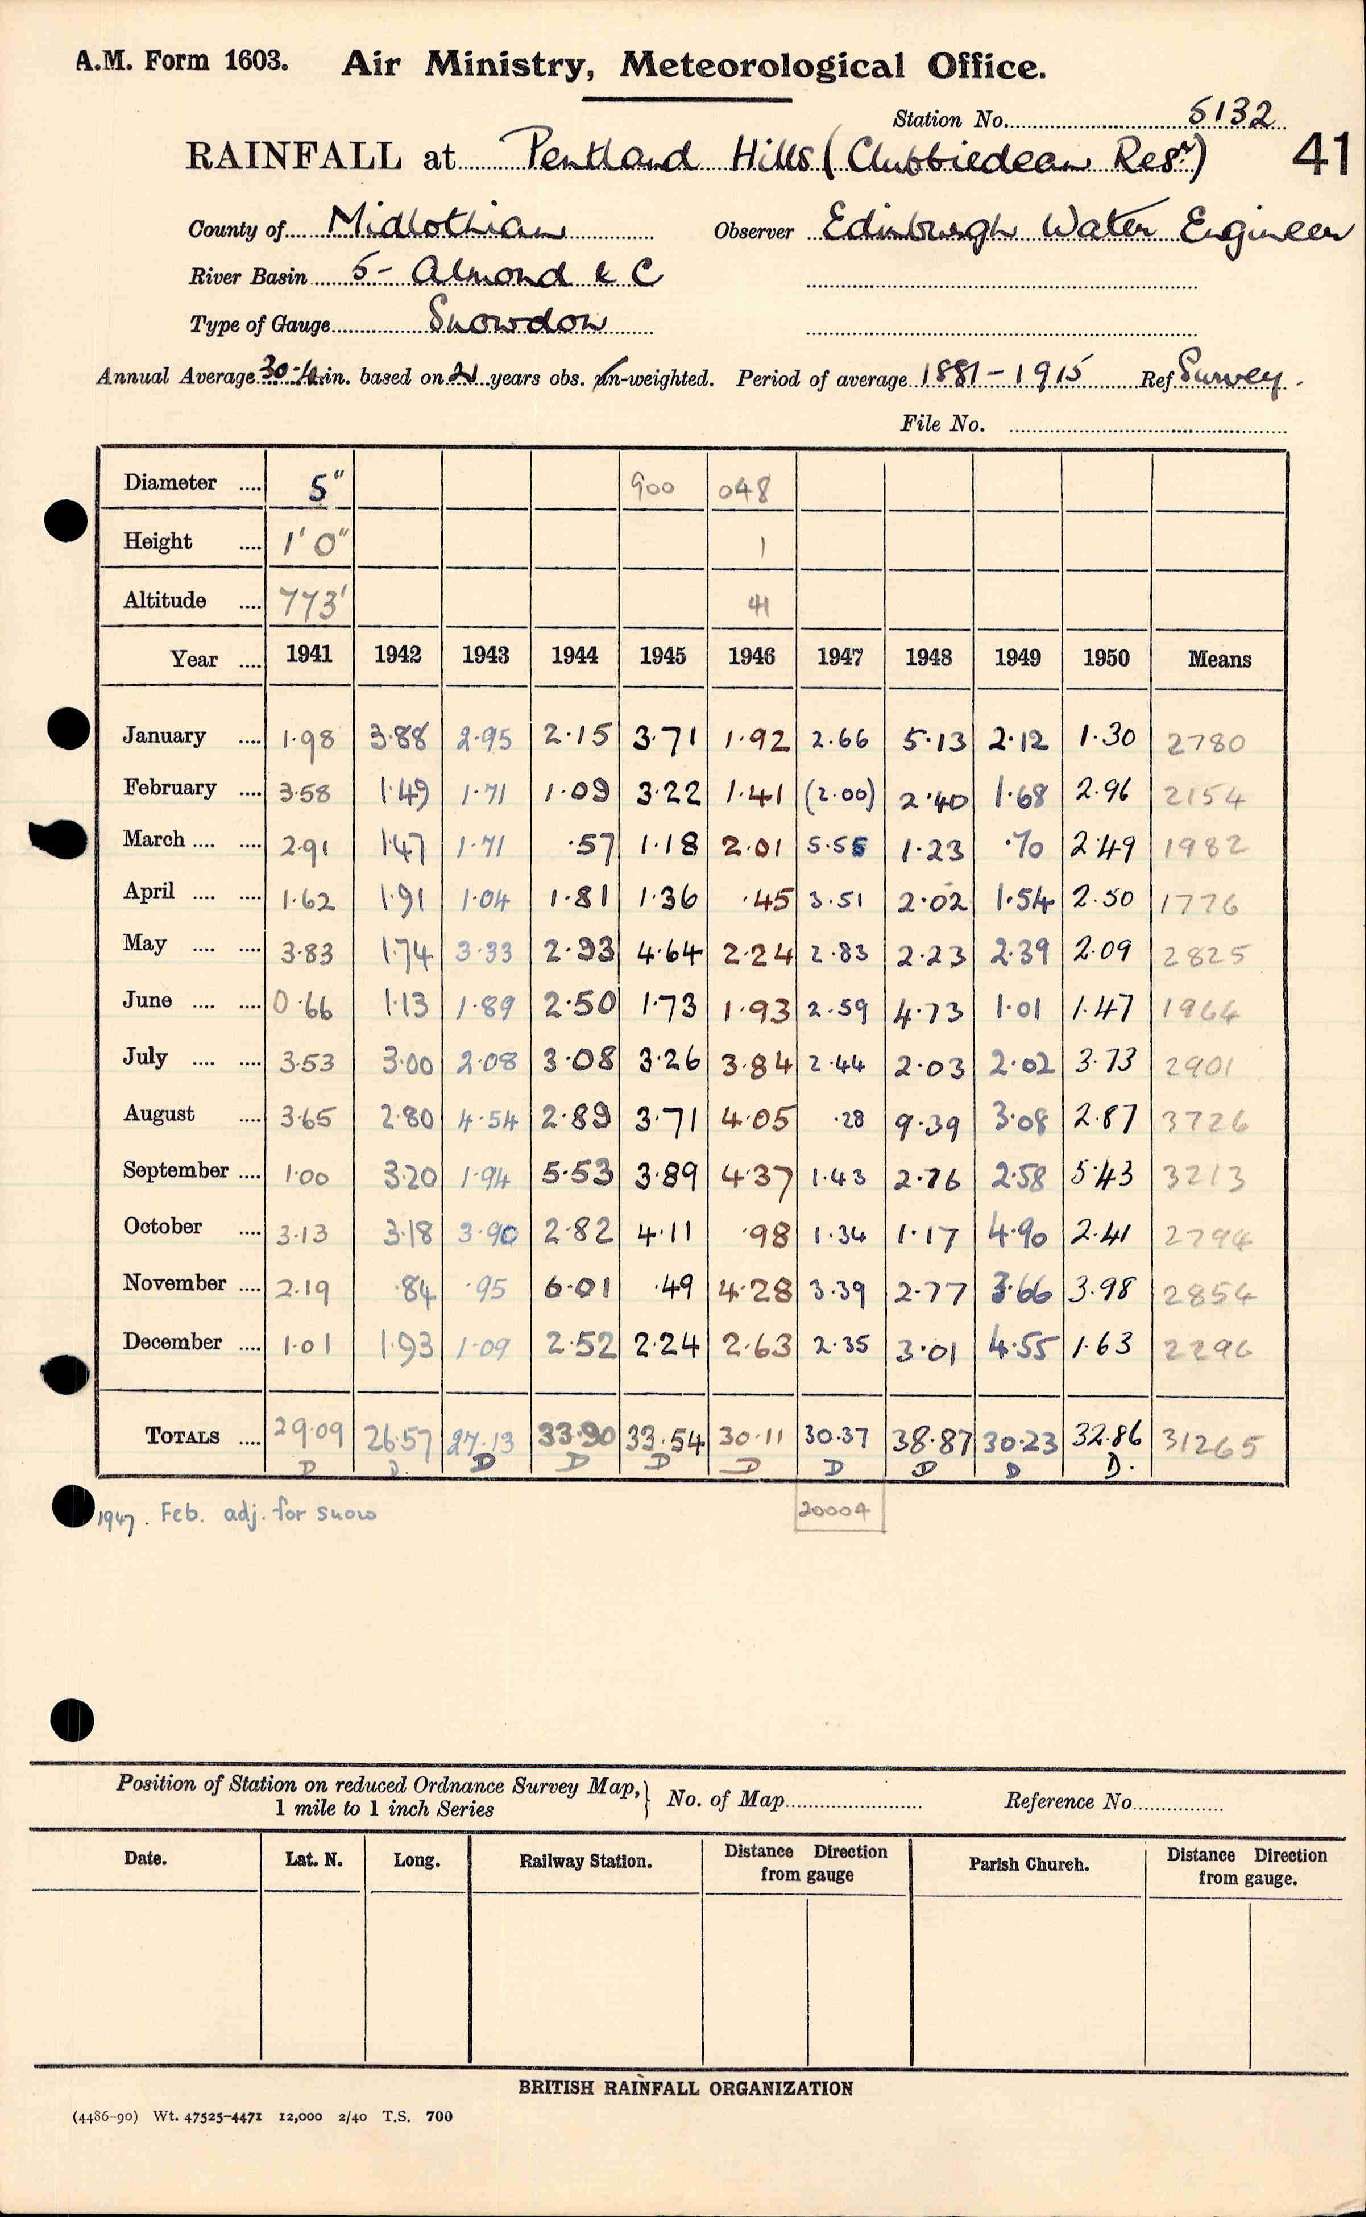 A.M. Form 1603. Air Ministry, Meteorological Office.
Station No. 5132
RAINFALL at Pentland Hills (Clubbiedean Resr) 41
County of Midlothian Observer Edinburgh Water Engineer
River Basin 5- Almond & C
Type of Gauge Snowdon
Annual Average in. based on 21 years obs. un-weighted. Period of average 1881-1915 Ref Survey.
File No.
Diameter .... 5" 900 048
Height .... 1' 0" 1
Altitude .... 773' 41
Year .... 1941 1942 1943 1944 1945 1946 1947 1948 1949 1950 Means
January .... 1.98 3.88 2.95 2.15 3.71 1.92 2.66 5.13 2.12 1.30 2780
February .... 3.58 1.49 1.71 1.09 3.22 1.41 (2.00) 2.40 1.68 2.96 2154
March .... .... 2.91 1.47 1.71 .57 1.18 2.01 5.55 1.23 .70 2.49 1982
April .... .... 1.62 1.91 1.04 1.81 1.36 .45 3.51 2.02 1.54 2.50 1776
May .... .... 3.83 1.74 3.33 2.93 4.64 2.24 2.83 2.23 2.39 2.09 2825
June .... .... 0.66 1.13 1.89 2.50 1.73 1.93 2.59 4.73 1.01 1.47 1964
July .... .... 3.53 3.00 2.08 3.08 3.26 3.84 2.44 2.03 2.02 3.73 2901
August .... 3.65 2.80 4.54 2.89 3.71 4.05 .28 9.39 3.08 2.87 3726
September .... 1.00 3.20 1.94 5.53 3.89 4.37 1.43 2.76 2.58 5.43 3213
October .... 3.13 3.18 3.90 2.82 4.11 .98 1.34 1.17 4.90 2.41 2794
November .... 2.19 .84 .95 6.01 .49 4.28 3.39 2.77 3.66 3.98 2856
December .... 1.01 1.93 1.09 2.52 2.24 2.63 2.35 3.01 4.55 1.63 2296
TOTALS .... 29.09 26.57 27.13 33.90 33.54 30.11 30.37 38.87 30.23 32.86 31265
D D D D D D D D D D.
1947. Feb. adj. for snow 20004
Position of Station on reduced Ordnance Survey Map, } No. of Map Reference No.
1 mile to 1 inch Series
Date. Lat. N. Long. Railway Station. Distance from gauge Direction Parish Church. Distance Direction from gauge.
BRITISH RAINFALL ORGANIZATION
(4486-90) Wt. 47525-4471 12,000 2/40 T.S. 700